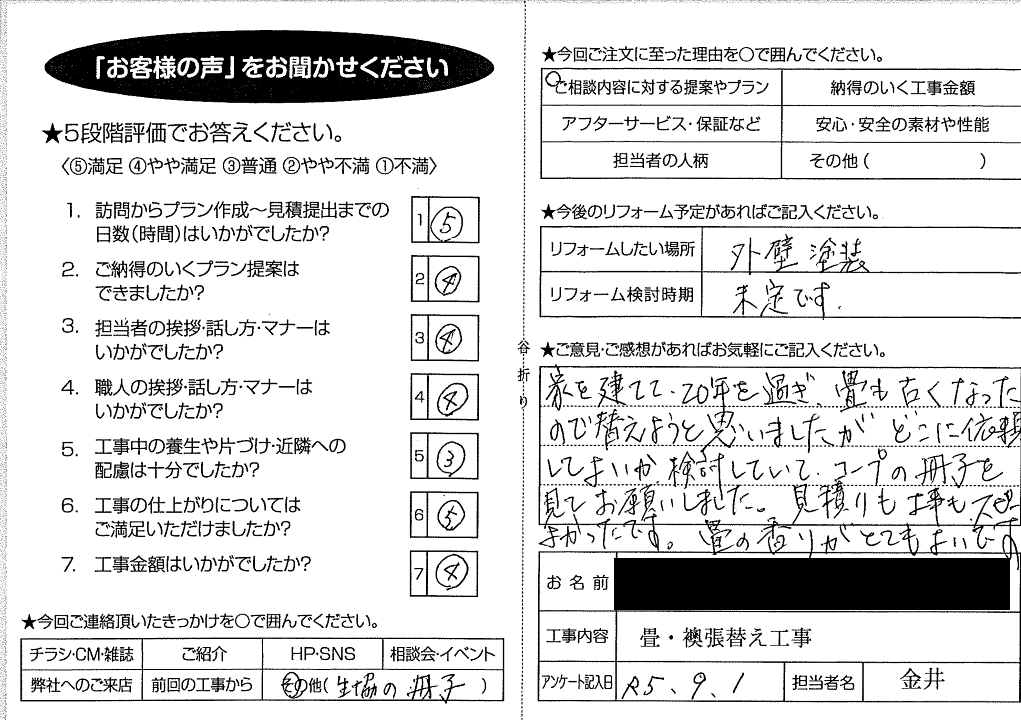 「お客様の声」をお聞かせください
★5段階評価でお答えください。
〈⑤満足 ④やや満足 ③普通 ②やや不満 ①不満〉
1. 訪問からプラン作成〜見積提出までの
日数(時間)はいかがでしたか?
1 ⑤
2. ご納得のいくプラン提案は
できましたか?
2 ④
3. 担当者の挨拶・話し方・マナーは
いかがでしたか?
3 ④
4. 職人の挨拶・話し方・マナーは
いかがでしたか?
4 ④
5. 工事中の養生や片づけ・近隣への
配慮は十分でしたか?
5 ③
6. 工事の仕上がりについては
ご満足いただけましたか?
6 ⑤
7. 工事金額はいかがでしたか?
7 ④
★今回ご連絡頂いたきっかけを〇で囲んでください。
チラシ・CM・雑誌 ご紹介 HP・SNS 相談会・イベント
弊社へのご来店 前回の工事から その他(生協の冊子)
谷折り
★今回ご注文に至った理由を〇で囲んでください。
ご相談内容に対する提案やプラン 納得のいく工事金額
アフターサービス・保証など 安心・安全の素材や性能
担当者の人柄 その他( )
★今後のリフォーム予定があればご記入ください。
リフォームしたい場所 外壁塗装
リフォーム検討時期 未定です.
★ご意見・ご感想があればお気軽にご記入ください。
家を建てて、20年を過ぎ、畳も古くなった
ので替えようと思いましたが どこに依頼
してよいか検討していて、コープの冊子を
見てお願いしました。見積りも工事も、スピー
よかったです。畳の香りがとてもよいです
お名前
工事内容 畳・襖張替え工事
アンケート記入日 R5、9、1 担当者名 金井